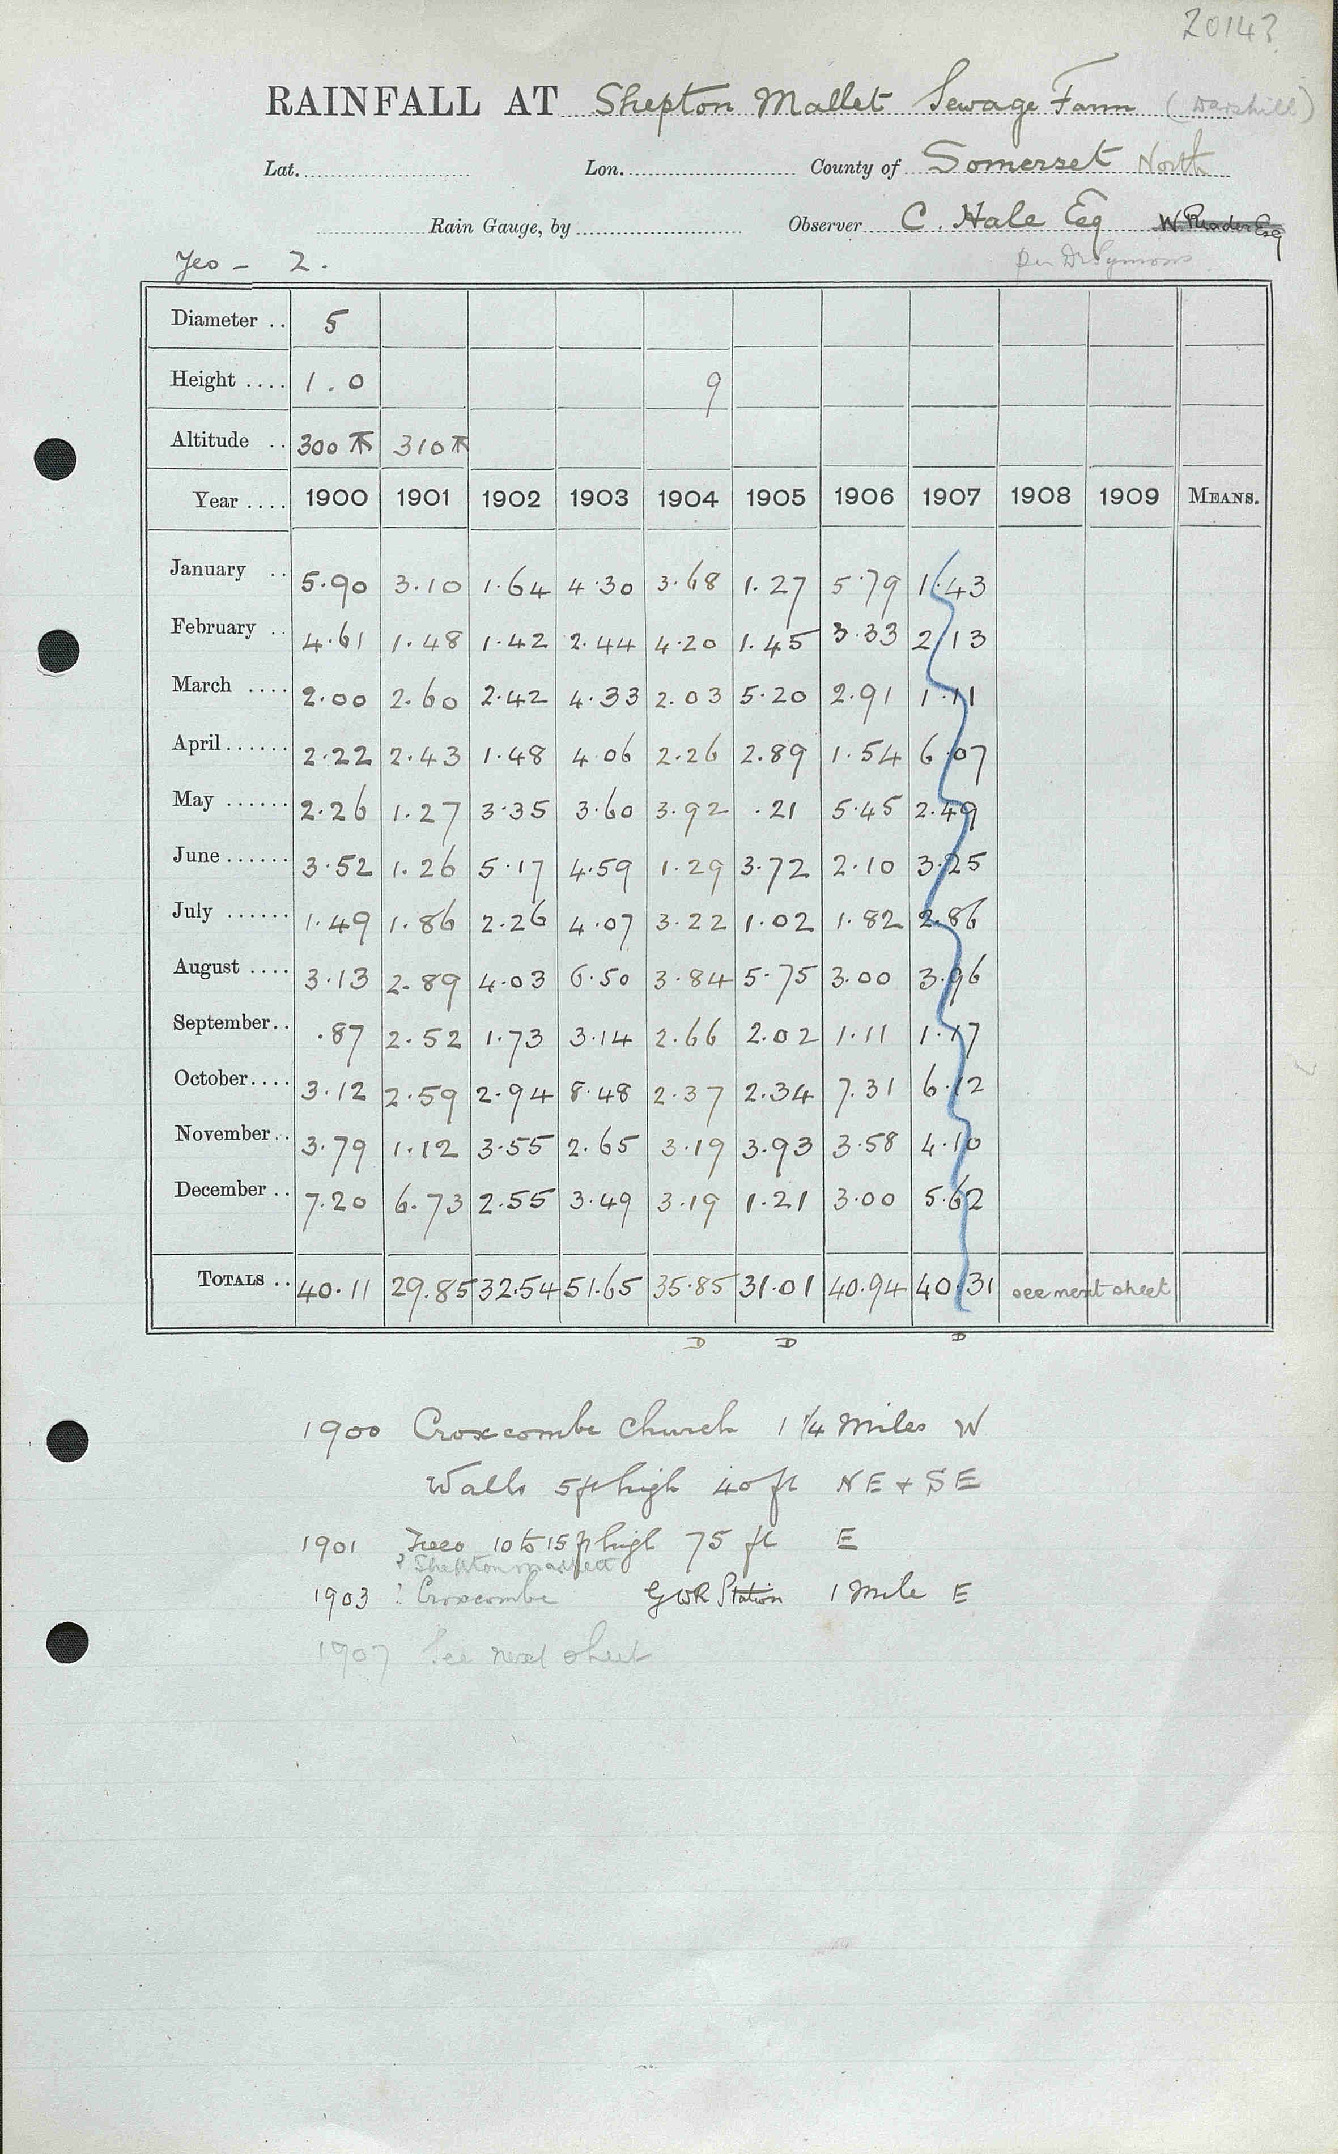 20143
RAINFALL AT Shepton Mallet Sewage Farm (Darshill)
Lat. Lon. County of Somerset North
Rain Gauge, by Observer C. Hale Esq W. Rhader Esq
Yeo - 2. per Dr Symons
Diameter .. 5
Height .... 1.0 9
Altitude .. 300 310
Year .... 1900 1901 1902 1903 1904 1905 1906 1907 1908 1909 MEANS.
January .. 5.90 3.10 1.64 4.30 3.68 1.27 5.79 1.43
February .. 4.61 1.48 1.42 2.44 4.20 1.45 3.33 2.13
March .... 2.00 2.60 2.42 4.33 2.03 5.20 2.91 1.11
April ...... 2.22 2.43 1.48 4.06 2.26 2.89 1.54 6.07
May ...... 2.26 1.27 3.35 3.60 3.92 .21 5.45 2.49
June ...... 3.52 1.26 5.17 4.59 1.29 3.72 2.10 3.25
July ...... 1.49 1.86 2.26 4.07 3.22 1.02 1.82 2.86
August .... 3.13 2.89 4.03 6.50 3.84 5.75 3.00 3.96
September .. .87 2.52 1.73 3.14 2.66 2.02 1.11 1.17
October .... 3.12 2.59 2.94 8.48 2.37 2.34 7.31 6.12
November .. 3.79 1.12 3.55 2.65 3.19 3.93 3.58 4.10
December .. 7.20 6.73 2.55 3.49 3.19 1.21 3.00 5.62
TOTALS .. 40.11 29.85 32.54 51.65 35.85 31.01 40.94 40.31 see next sheet
D D D
1900 Croxcombe Church 1 1/4 Miles W
Walls 5 ft high 40 ft NE + SE
1901 Trees 10 to 15 ft high 75 ft E
? Shepton Mallett
1903 ? Croxcombe GWR Station 1 Mile E
1907 See next sheet